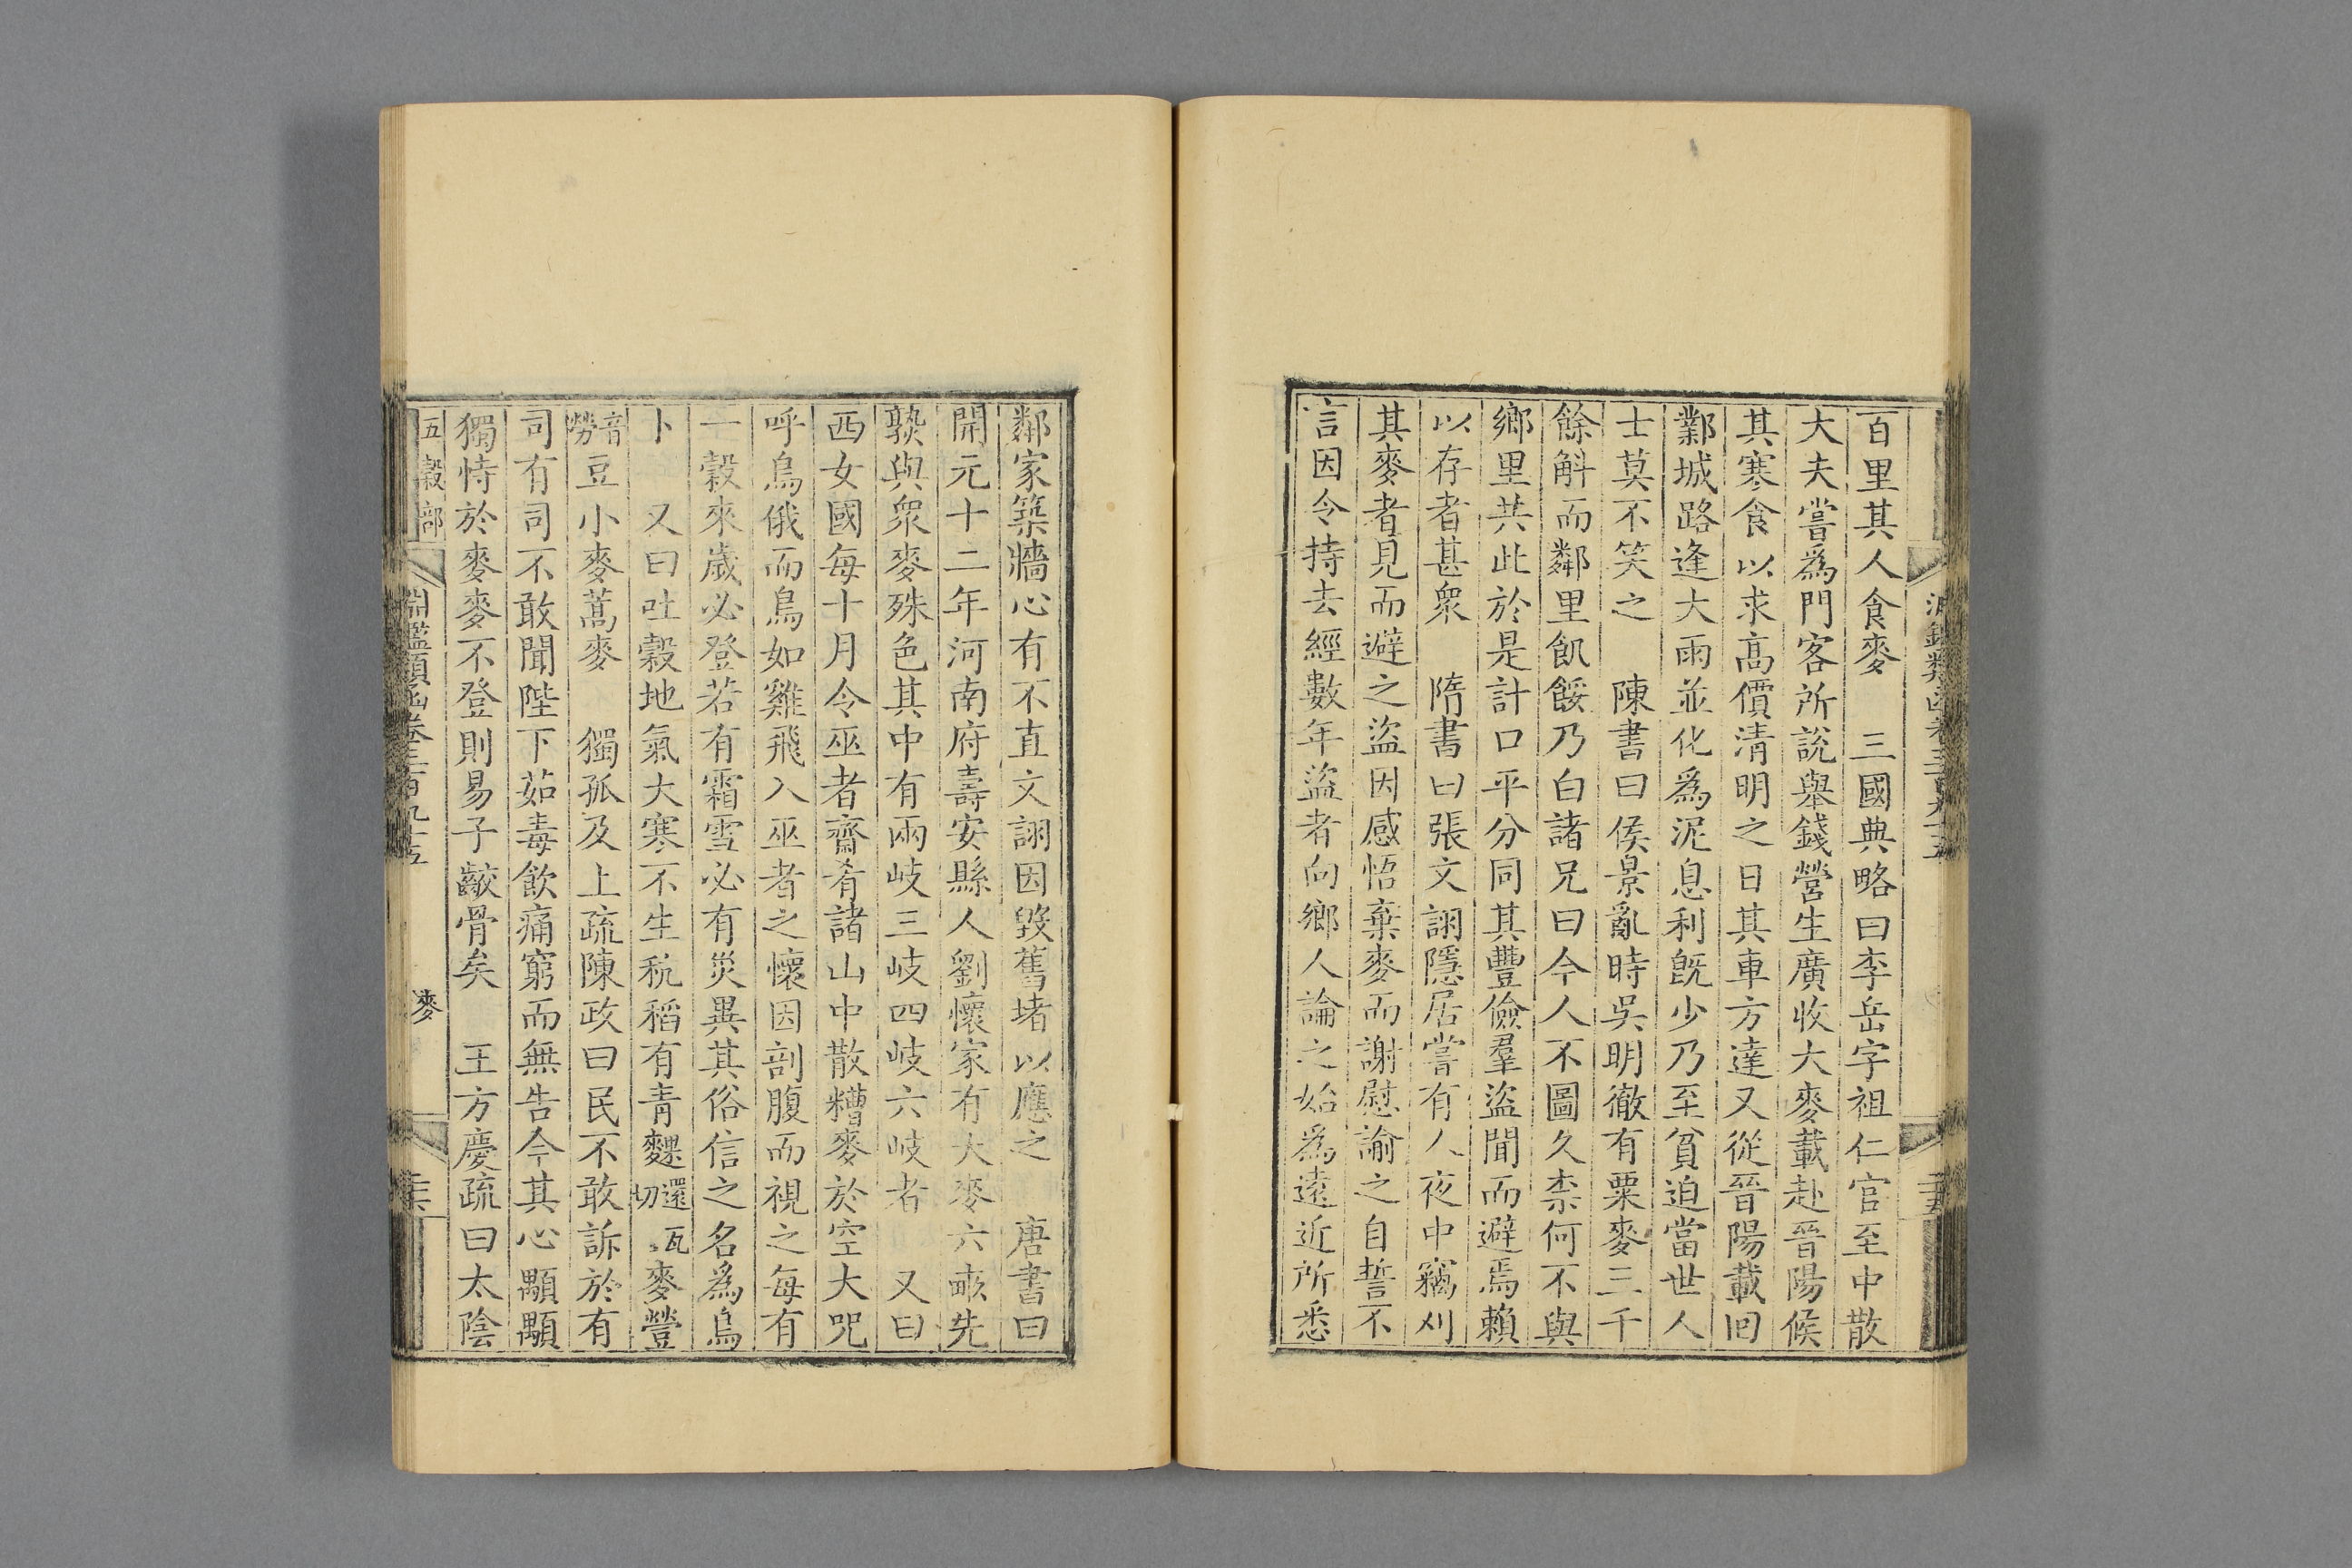 百里其人食麥　三國典略曰李岳字祖仁官至中散
大夫嘗爲門客所說舉錢營生廣收大麥載赴晉陽候
其寒食以求高價清明之日其車方達又從晉陽載回
鄴城路逢大雨並化爲泥息利旣少乃至貧迫當世人
士莫不笑之　陳書曰侯景亂時吳明徹有粟麥三千
餘斛而鄰里飢餒乃白諸兄曰今人不圖久柰何不與
鄉里共此於是計口平分同其豐儉羣盜聞而避焉賴
以存者甚衆　隋書曰張文詡隱居嘗有人夜中竊刈
其麥者見而避之盜因感悟棄麥而謝慰諭之自誓不
言因令持去經數年盜者向鄉人論之始爲遠近所悉
鄰家築牆心有不直文詡因毀舊堵以應之　唐書曰
開元十二年河南府壽安縣人劉懷家有大麥六畝先
孰與衆麥殊色其中有兩岐三岐四岐六岐者　又曰
西女國每十月令巫者齋肴諸山中散糟麥於空大咒
呼鳥俄而鳥如雞飛入巫者之懷因剖腹而視之每有
一穀來歲必登若有霜雪必有災異其俗信之名爲鳥
卜　又曰吐穀地氣大寒不生秔稻有青麰還瓦切麥䝁
音勞豆小麥蒿麥　獨孤及上疏陳政曰民不敢訴於有
司有司不敢聞陛下茹毒飲痛窮而無告今其心顒顒
獨恃於麥麥不登則易子齩骨矣　王方慶疏曰太陰
五穀部
淵鑑類函卷三百九十五
麥